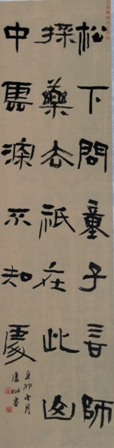 松下問童子言師
採藥去祇在此山
中雲深不知處
辛卯